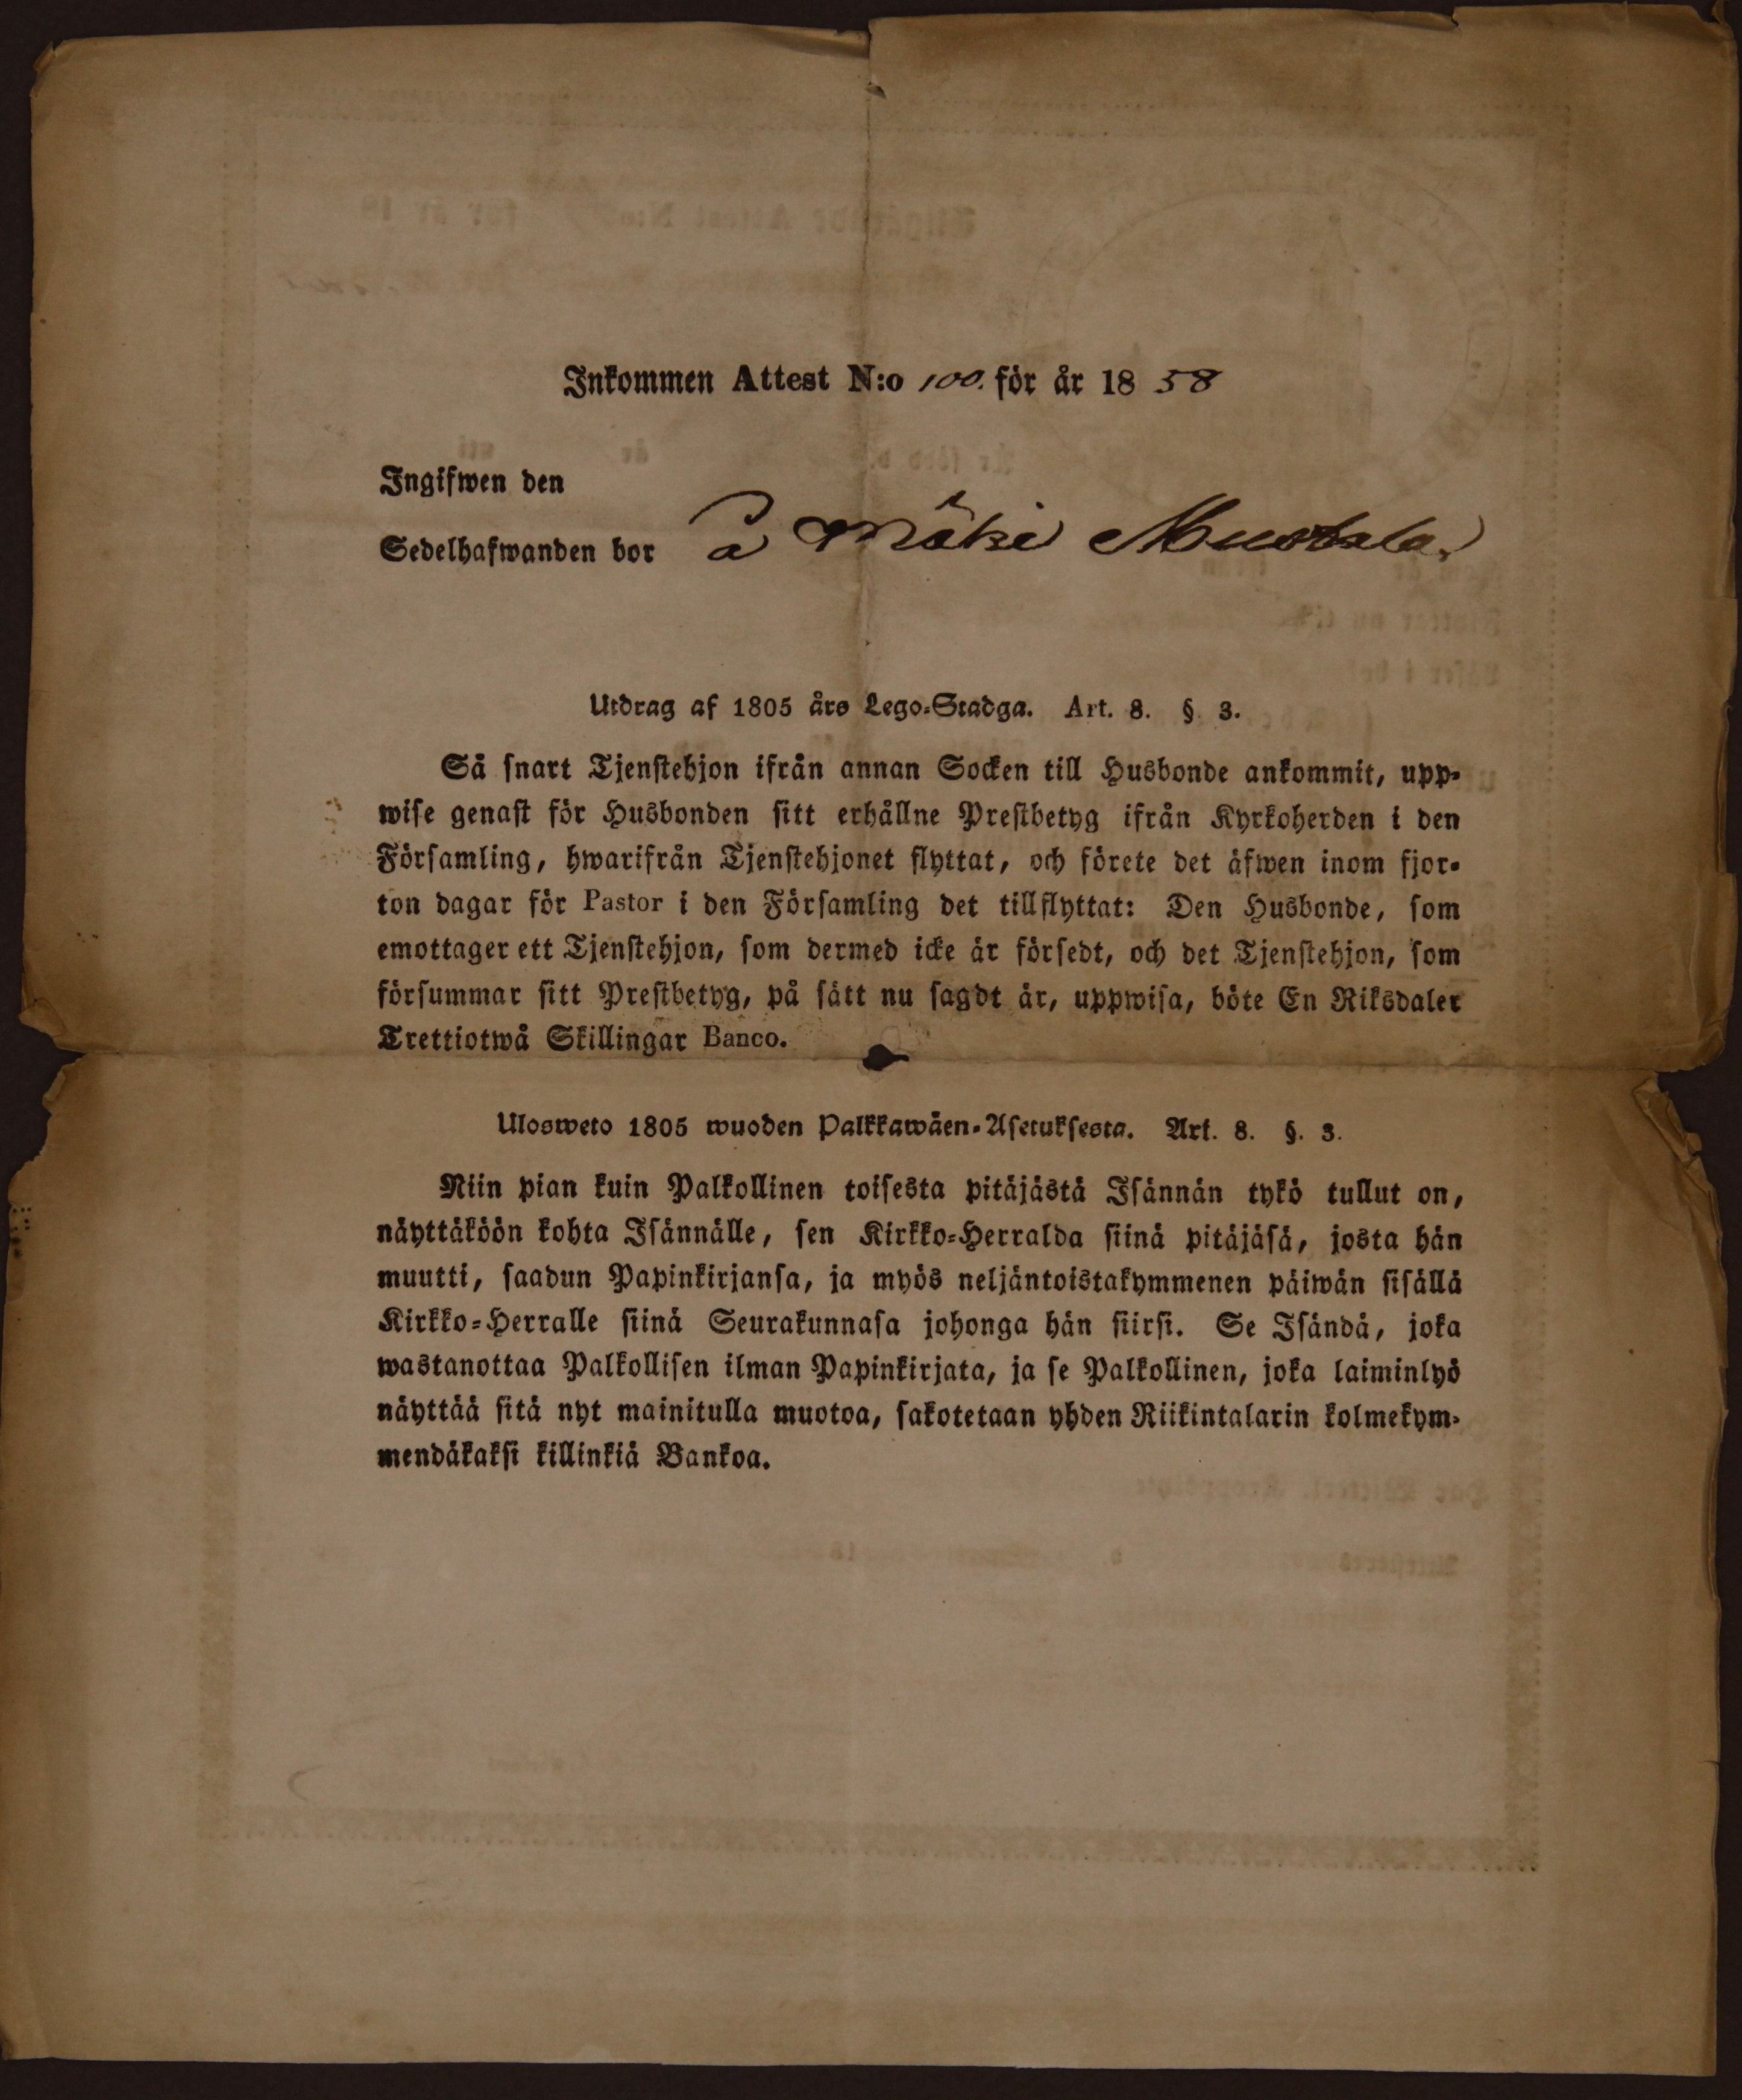 Inkommen Attest N:o 100. för år 1858
Ingifwen den
Sedelhafwanden bor å Mäki Mustala.
Utdrag af 1805 års Lego-Stadga. Art. 8. § 3.
Så snart Tjenstehjon ifrån annan Socken till Husbonde ankommit, upp-
wise genast för Husbonden sitt erhållne Prestbetyg ifrån Kyrkoherden i den
Församling, hwarifrån Tjenstehjonet flyttat, och förete det äfwen inom fjor-
ton dagar för Pastor i den Församling det tillflyttat: Den Husbonde, som
emottager ett Tjenstehjon, som dermed icke är försedt, och det Tjenstehjon, som
försummar sitt Prestbetyg, på sätt nu sagdt är, uppwisa, böte En Riksdaler
Trettiotwå Skillingar Banco.
Ulosweto 1805 wuoden Palkkawäen-Asetuksesta. Art. 8. §. 3.
Niin pian kuin Palkollinen toisesta pitäjästä Isännän tykö tullut on,
näyttäköön kohta Isännälle, sen Kirkko-Herralda siinä pitäjäsä, josta hän
muutti, saadun Papinkirjansa, ja myös neljäntoistakymmenen päiwän sisällä
Kirkko-Herralle siinä Seurakunnasa johonga hän siirsi. Se Isändä, joka
wastanottaa Palkollisen ilman Papinkirjata, ja se Palkollinen, joka laiminlyö
näyttää sitä nyt mainitulla muotoa, sakotetaan yhden Riikintalarin kolmekym-
mendäkaksi killinkiä Bankoa.